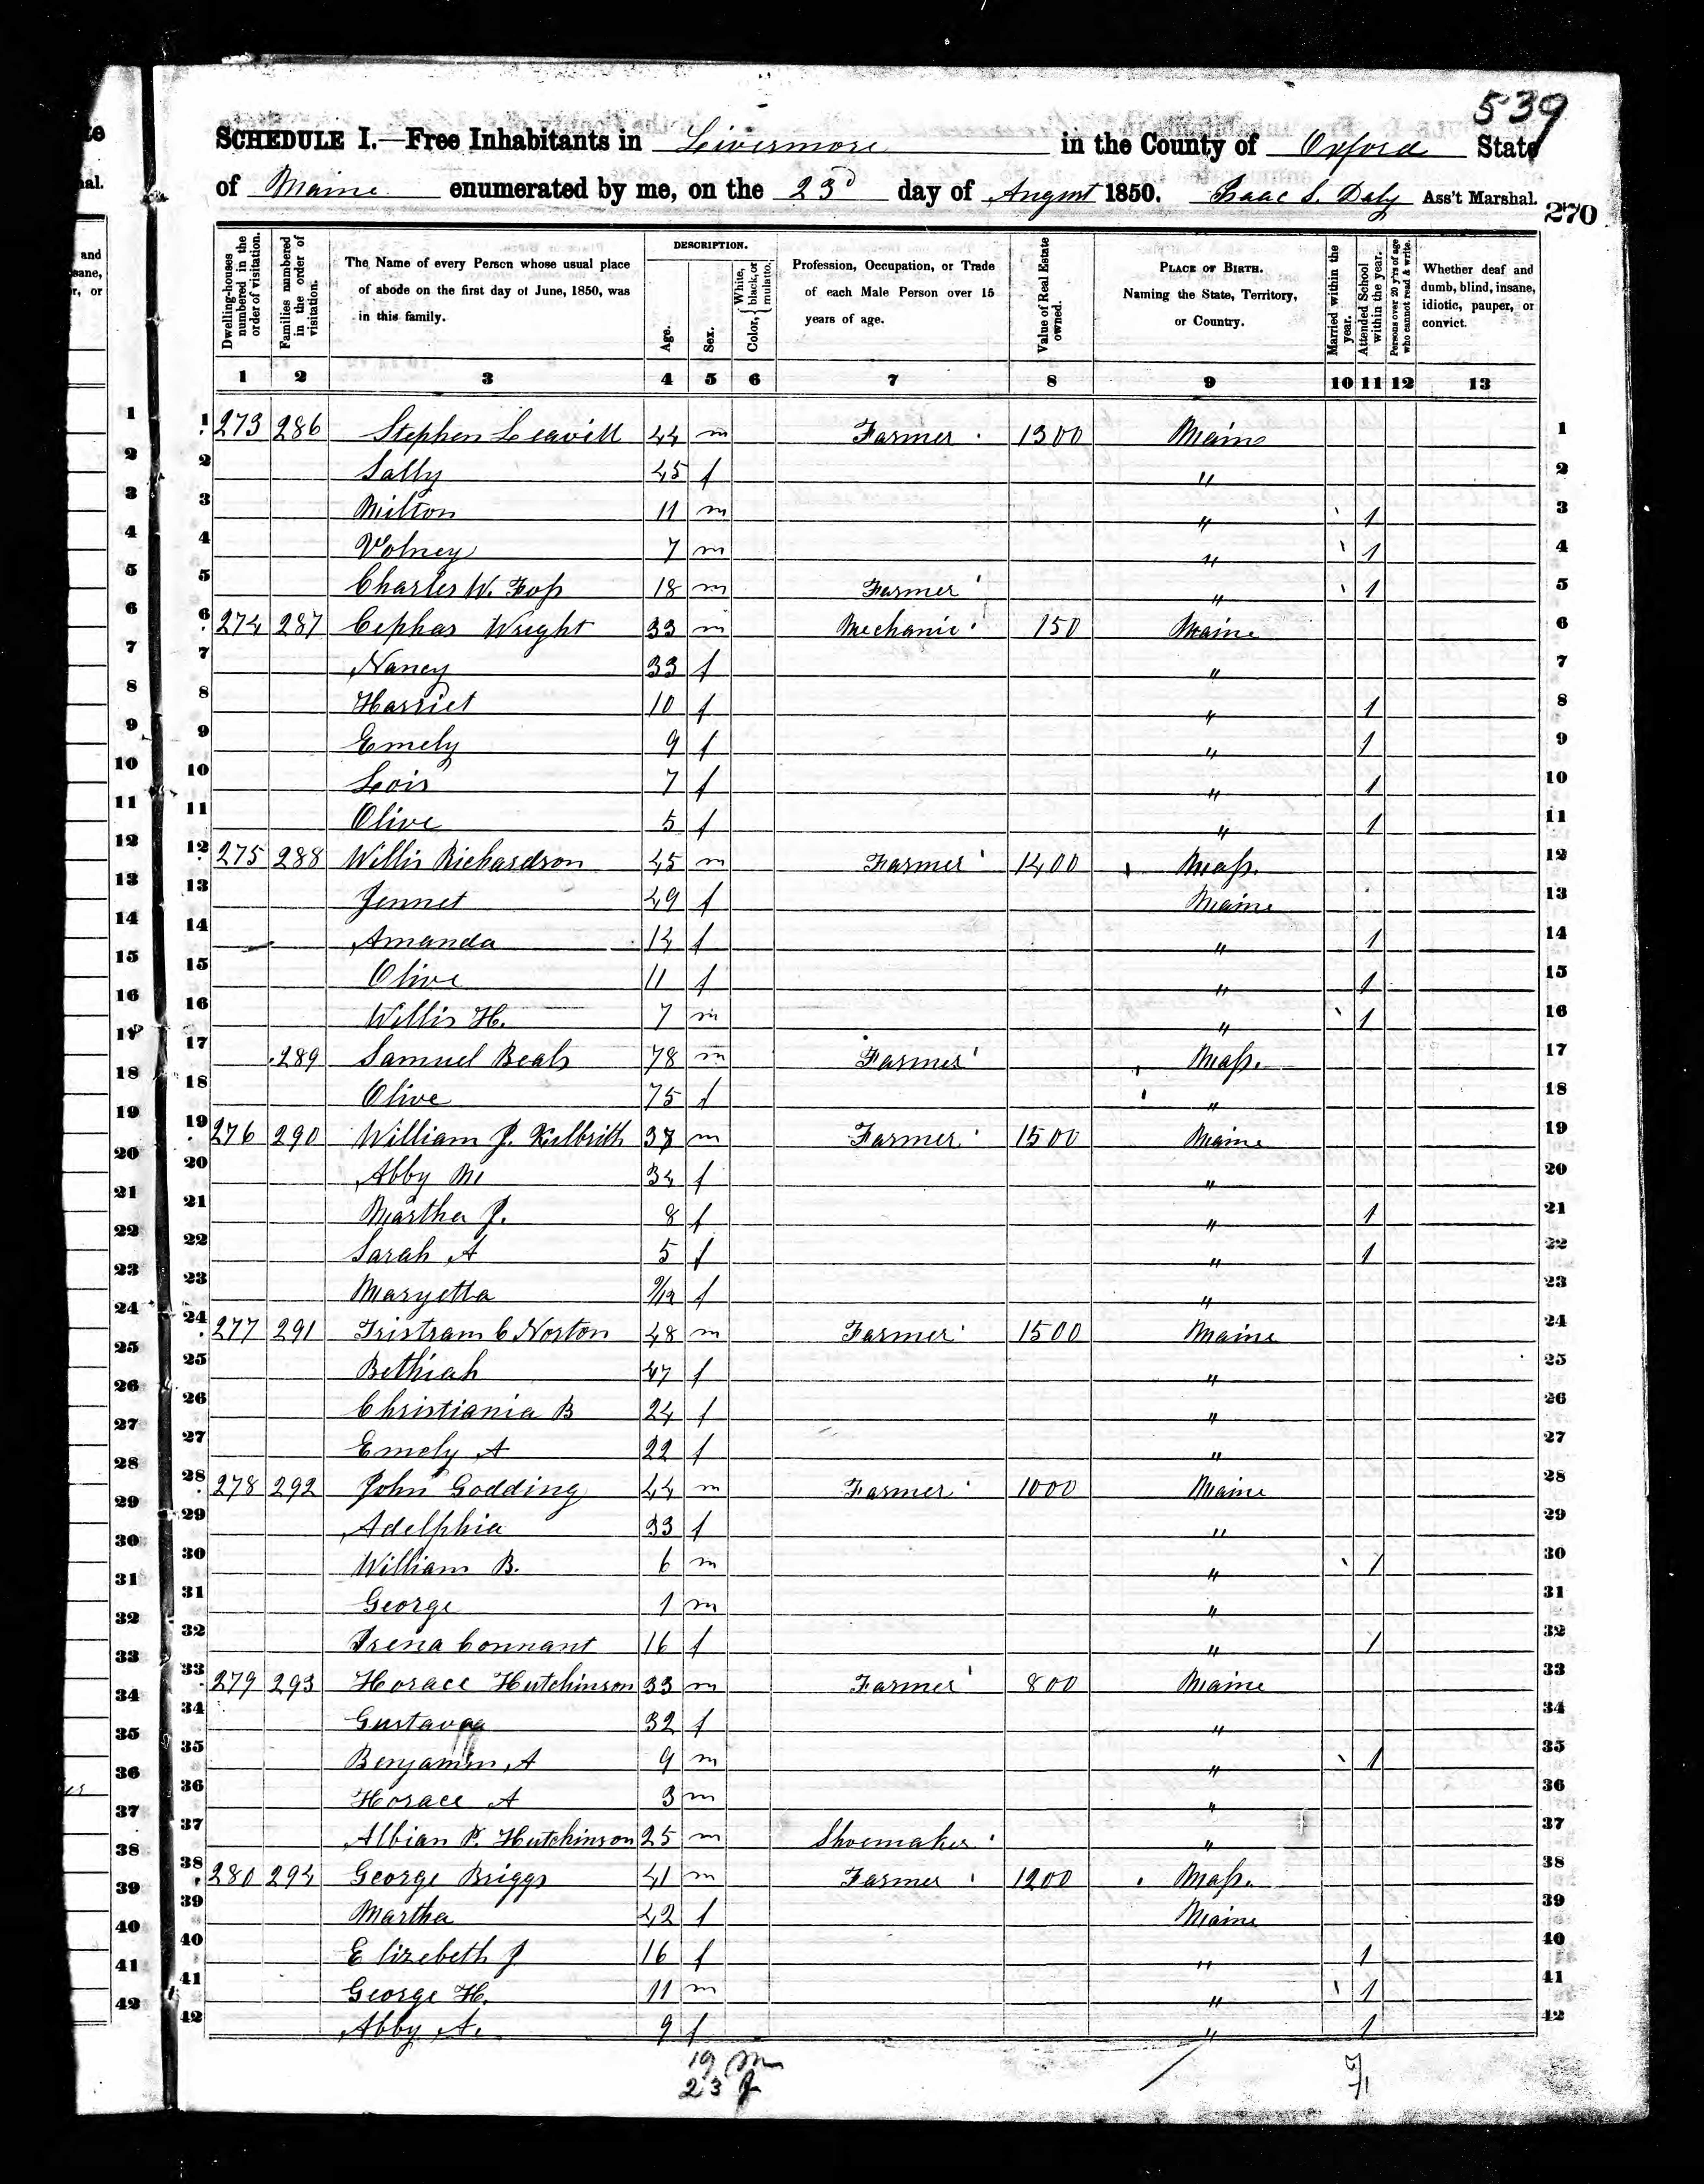 539
SCHEDULE I.—Free Inhabitants in Livermore in the County of Oxford State
of Maine enumerated by me, on the 23d day of August 1850. Isaac S. Daly Ass't Marshal.
270
Dwelling-houses numbered in the order of visitation.
Families numbered in the order of visitation.
The Name of every Person whose usual place of abode on the first day of June, 1850, was in this family.
DESCRIPTION.
Age.
Sex.
Color, { White, black, or mulatto.
Profession, Occupation, or Trade of each Male Person over 15 years of age.
Value of Real Estate owned.
PLACE OF BIRTH. Naming the State, Territory, or Country.
Married within the year.
Attended School within the year.
Persons over 20 y'rs of age who cannot read & write.
Whether deaf and dumb, blind, insane, idiotic, pauper, or convict.
1 2 3 4 5 6 7 8 9 10 11 12 13
1 273 286 Stephen Leavitt 44 m Farmer 1300 Maine 1
2 Sally 45 f " 2
3 Milton 11 m " 1 3
4 Volney 7 m " 1 4
5 Charles W. Foss 18 m Farmer " 1 5
6 274 287 Cephas Wright 33 m Mechanic 150 Maine 6
7 Nancy 33 f " 7
8 Harriet 10 f " 1 8
9 Emely 9 f " 1 9
10 Lois 7 f " 1 10
11 Olive 5 f " 1 11
12 275 288 Willis Richardson 45 m Farmer 1400 Mass. 12
13 Jennet 49 f Maine 13
14 Amanda 14 f " 1 14
15 Olive 11 f " 1 15
16 Willis H. 7 m " 1 16
17 289 Samuel Beals 78 m Farmer Mass. 17
18 Olive 75 f " 18
19 276 290 William J. 38 m Farmer 1500 Maine 19
20 Abby M 34 f " 20
21 Martha J. 8 f " 1 21
22 Sarah A 5 f " 1 22
23 Maryetta 9/12 f " 23
24 277 291 Tristram C Norton 48 m Farmer 1500 Maine 24
25 Bethiah 47 f " 25
26 Christiania B 24 f " 26
27 Emely A 22 f " 27
28 278 292 John Godding 44 m Farmer 1000 Maine 28
29 Adelphia 33 f " 29
30 William B. 6 m " 1 30
31 George 1 m " 31
32 Irena Connant 16 f " 1 32
33 279 293 Horace Hutchinson 33 m Farmer 800 Maine 33
34 Gustavaa 32 f " 34
35 Benjamin A 9 m " 1 35
36 Horace A 3 m " 36
37 Albian P. Hutchinson 25 m Shoemaker " 37
38 280 294 George Briggs 41 m Farmer 1200 Mass. 38
39 Martha 42 f Maine 39
40 Elizebeth J 16 f " 1 40
41 George H. 11 m " 1 41
42 Abby A. 9 f " 1 42
19 m
23 f